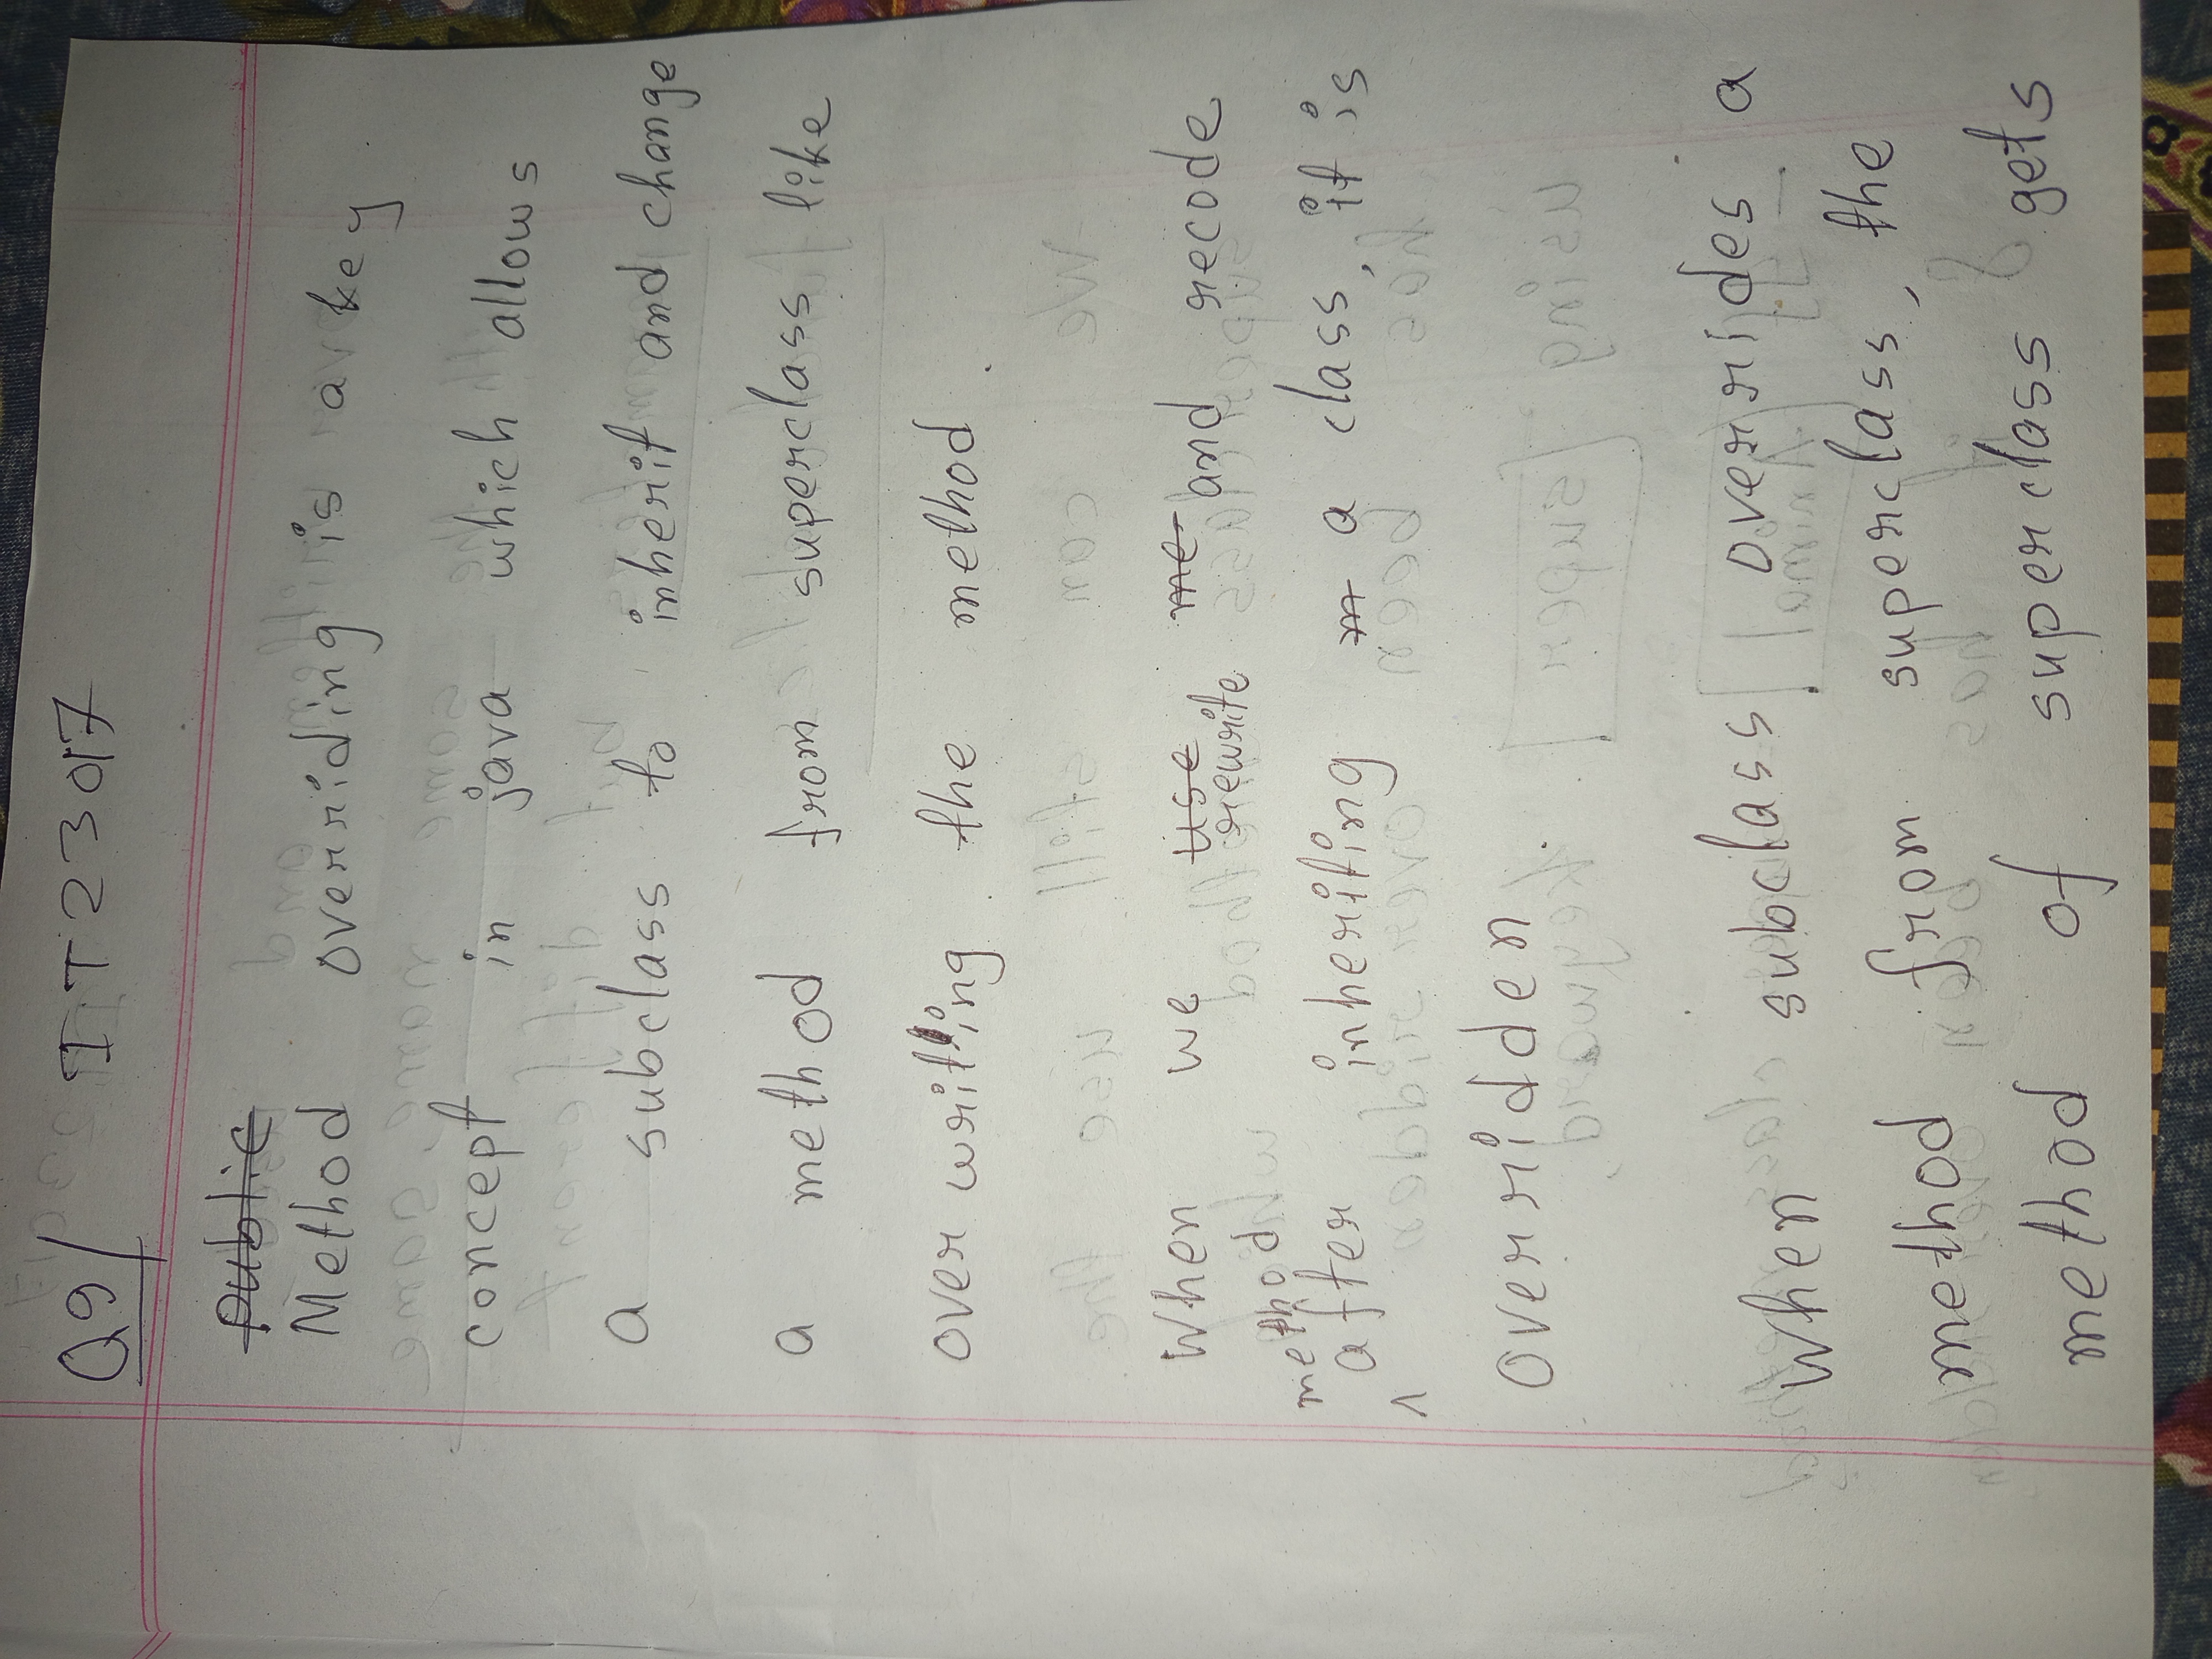 Q9/ IT23017
public
Method overriding is a key
concept in java which allows
a subclass to inherit and change
a method from superclass like
over writing the method.
When we use rewrite me and recode
method
after inheriting m a class, it is
overridden.
When subclass overrides a
method from superclass, the
method of superclass gets